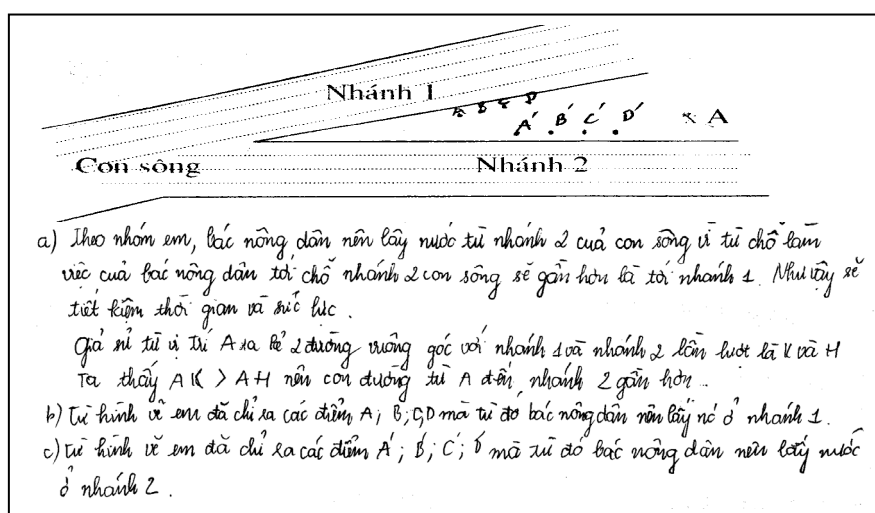 Nhánh 1
A B C D
A' B' C' D' A
Con sông Nhánh 2
a) Theo nhóm em, bác nông dân nên lấy nước từ nhánh 2 của con sông vì từ chỗ làm
việc của bác nông dân tới chỗ nhánh 2 con sông sẽ gần hơn là tới nhánh 1. Như vậy sẽ
tiết kiệm thời gian và sức lực.
Giả sử từ vị trí A ta kẻ 2 đường vuông góc với nhánh 1 và nhánh 2 lần lượt là K và H
Ta thấy AK > AH nên con đường từ A đến nhánh 2 gần hơn...
b) Từ hình vẽ em đã chỉ ra các điểm A; B; C; D mà từ đó bác nông dân nên lấy nc ở nhánh 1.
c) Từ hình vẽ em đã chỉ ra các điểm A'; B'; C'; D' mà từ đó bác nông dân nên lấy nước
ở nhánh 2.